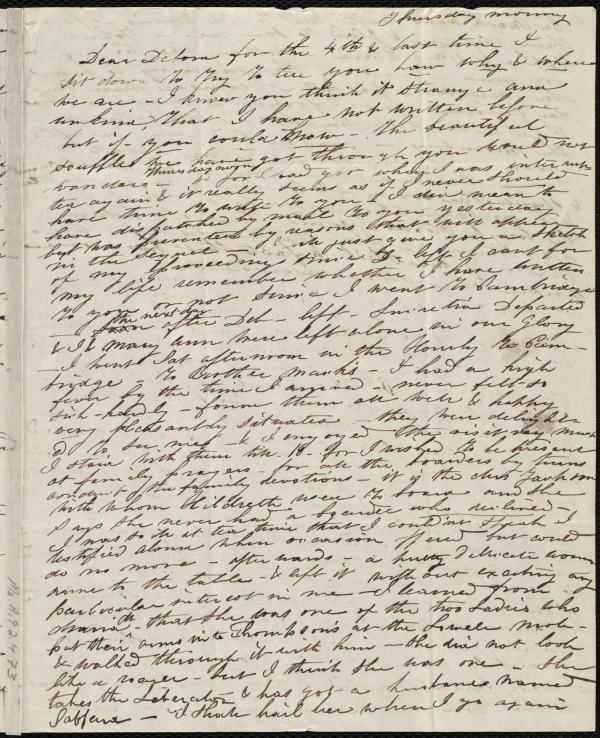 Thursday morning
Dear Debora for the 4th & last time I
sit down to try to tell you how why & where
we are - I know you think it strange and
unkind, that I have not written before
but if you could know - The beautiful
souffles we have got through you would not
wonder - Thursday night so far I had got when I was inter rupted
again & it really seems as if I never should
have time to write to you - I did mean to
have dispatched by mail to you yesterday
but was prevented by reasons that will appear
in the sequel - I will just give you a sketch
of my proceedings since D- left I cant for
my life remember whether I have written
to you or not since I went to Cambridge
- the next day after Deb - left - Lucretia Departed
& I & Mary Ann were left alone in our glory
- I went Sat afternoon in the Hourly to Cam-
bridge to Brother Mack's - I had a high
fever by the time I arrived - never felt so
sick hardly - found them all well & happy
very pleasantly situated - they were delight-
ed to see me - & I enjoyed the visit very much
I staid with them till 10 - for I wished to be present
at family prayers - for all the boarders by turns
conduct the family devotions - it is the Miss Jackson
with whom Hildreth used to board and she
says she never had a boarder who declined -
I was so ill at tea time that I couldnt speak I
testified alone when occasion offered but could
do no more - afterwards - a pretty delicate woman
came to the table - & left it without exciting any
particular interest in me - I learned from
that she was one of the two Ladies who
put their arms into Thompson's at the Lowell mob -
& walked through it with him - she did not look
like a - but I think she was one - She
takes the Liberator & has got a husband named
- I shall hail her when I go again
Ms.A.9.2.4.73